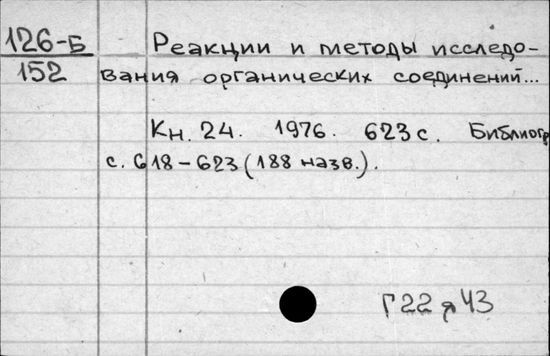 126-Б
152
Реакции и методы исследо-
вания органических соединений...
Кн. 24. 1976. 623 с. Библиогр
с. 618-623 (188 назв.).
Г22я43